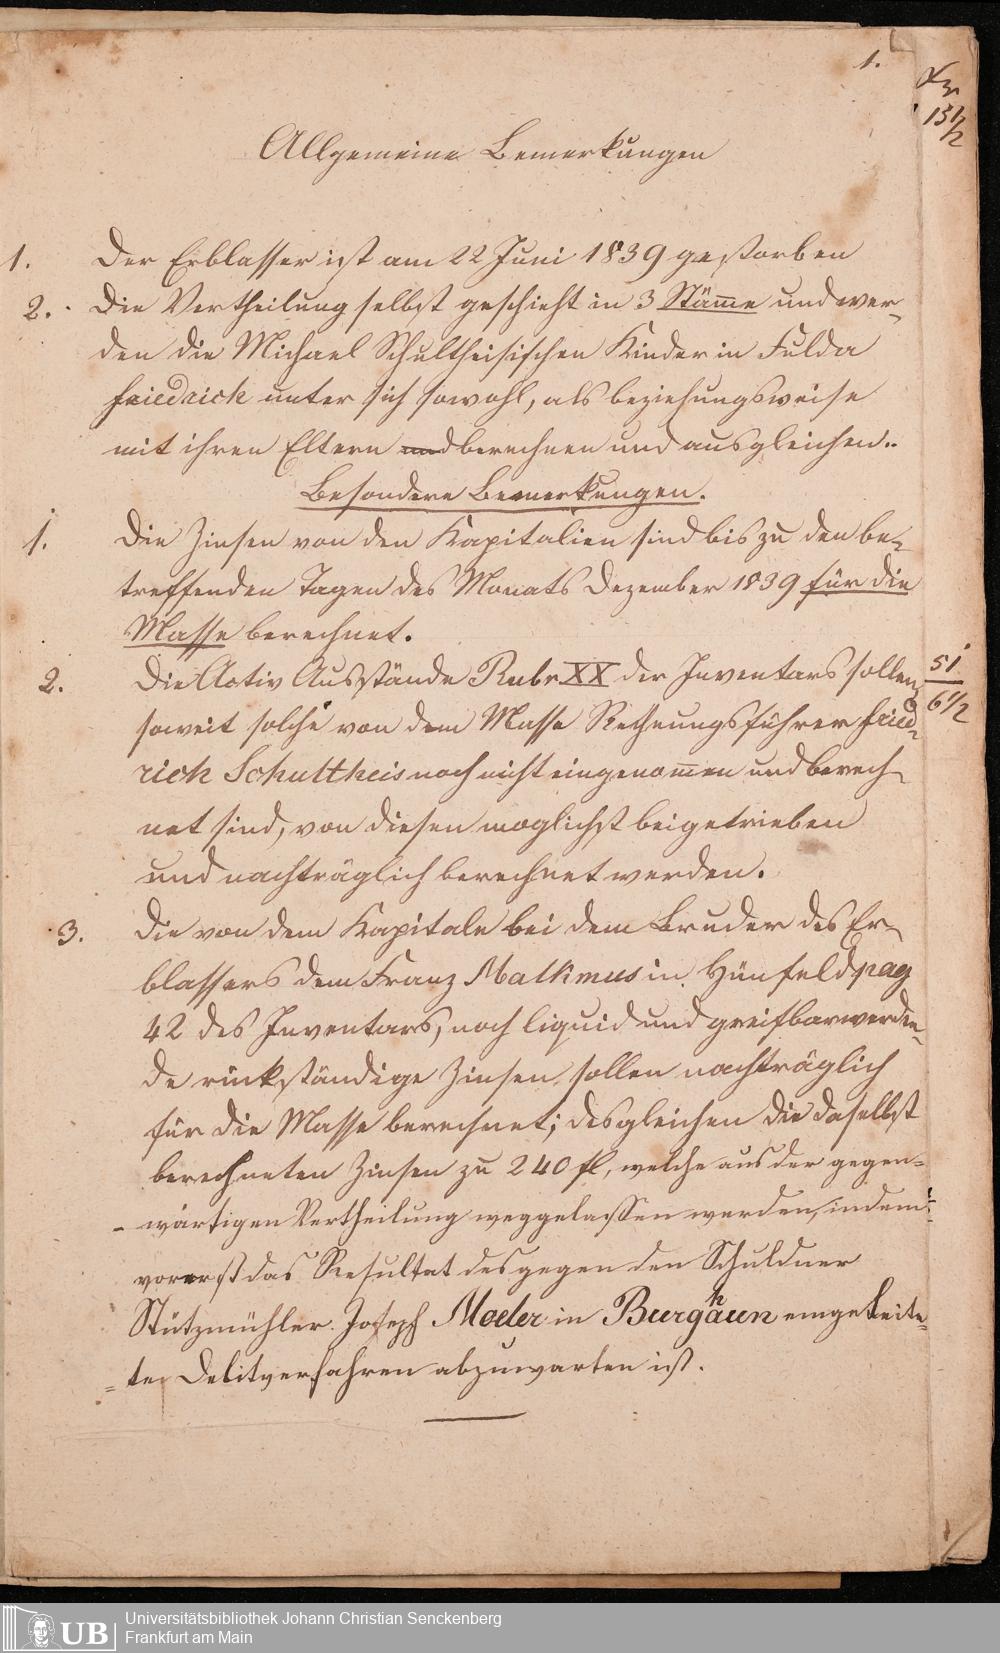 1.
Xr
15 1/2
Allgemeine Bemerkungen
1. Der Erblasser ist am 22 Juni 1839 gestorben
2. Die Vertheilung selbst geschieht in 3 Stäm̅e und wer-
den die Michael Schultheisischen Kinder in Fulda
Friedrich unter sich sowohl, als beziehungsweise
mit ihren Eltern und berechnen und ausgleichen.
Besondere Bemerkungen.
1. Die Zinsen von den Kapitalien sind bis zu den be-
treffenden Tagen des Monats Dezember 1839 für die
Masse berechnet.
2. Die Activ Ausstände Rubr XX der Inventars sollen,
51
6 1/2
soweit solche von dem Masse Rechnungsführer Fried-
rich Schultheis noch nicht eingenom̅en und berech-
net sind, von diesen moglichst beigetrieben
und nachträglich berechnet werden.
3. Die von dem Kapitale bei dem Bruder des Er-
blassers dem Franz Malkmus in Hünfeld pag
42 des Inventars, noch liquid und greifbar werden-
de rückständige Zinsen, sollen nachträglich
für die Masse berechnet; desgleichen die daselbst
berechneten Zinsen zu 240 fl, welche aus der gegen-
wärtigen Vertheilung weggelassen werden, indem
vorerst das Resultat des gegen den Schuldner
Josepf Moeder in Burghaun eingeleite-
te Debitverfahren abzuwarten ist.
UB Universitätsbibliothek Johann Christian Senckenberg
Frankfurt am Main